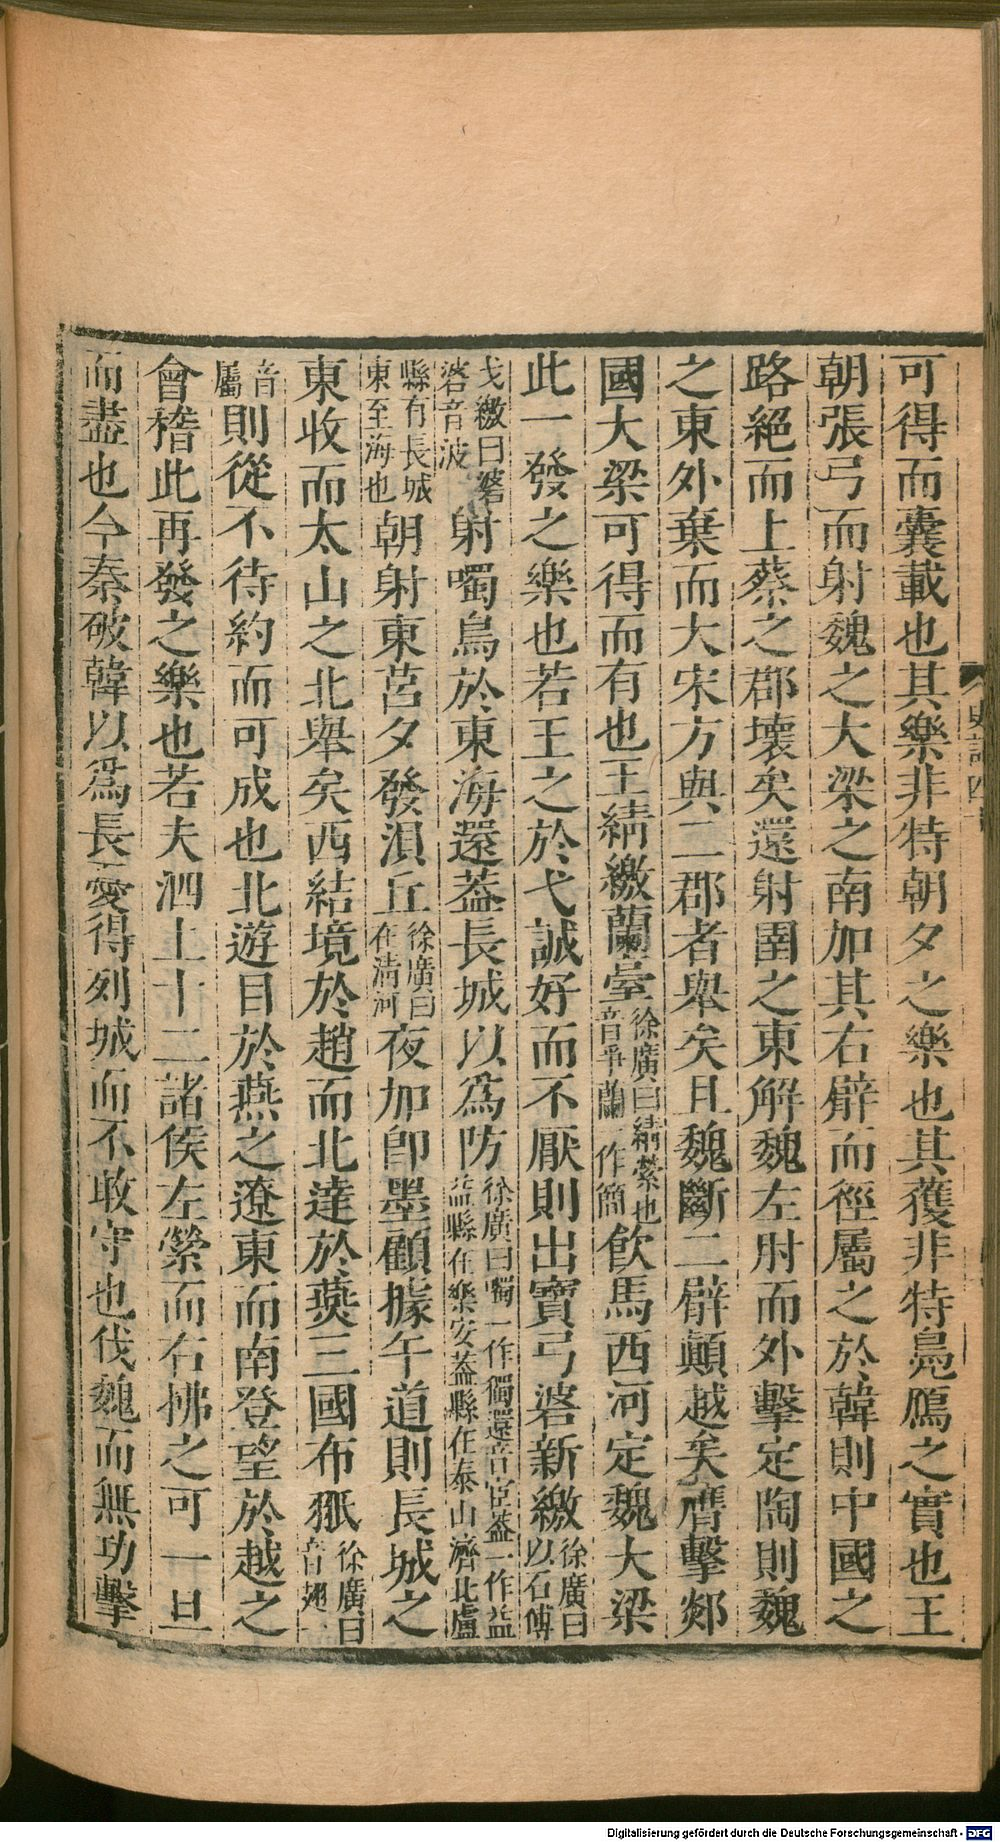 可得而囊載也其樂非特朝夕之樂也其獲非特鳧鴈之實也王
朝張弓而射魏之大梁之南加其右臂而徑屬之於韓則中國之
路絕而上蔡之郡壞矣還射圉之東解魏左肘而外擊定陶則魏
之東外棄而大宋方與二郡者舉矣且魏斷二臂顛越矣膺擊郯
國大梁可得而有也王綪繳蘭臺徐廣曰綪縈也音爭蘭一作簡飲馬西河定魏大梁
此一發之樂也若王之於弋誠好而不厭則出寶弓碆新繳徐廣曰以石傅
弋繳曰碆碆音波射噣鳥於東海還蓋長城以爲防徐廣曰噣一作獨還音宦蓋一作益益縣在樂安蓋縣在泰山濟北盧
縣有長城東至海也朝射東莒夕發浿丘徐廣曰在清河夜加即墨顧據午道則長城之
東收而太山之北舉矣西結境於趙而北達於燕三國布𤝔徐廣曰音翅一
音屬則從不待約而可成也北遊目於燕之遼東而南登望於越之
會稽此再發之樂也若夫泗上十二諸侯左縈而右拂之可一旦
而盡也今秦破韓以爲長憂得列城而不敢守也伐魏而無功擊
史記四
Digitalisierung gefördert durch die Deutsche Forschungsgemeinschaft - DFG